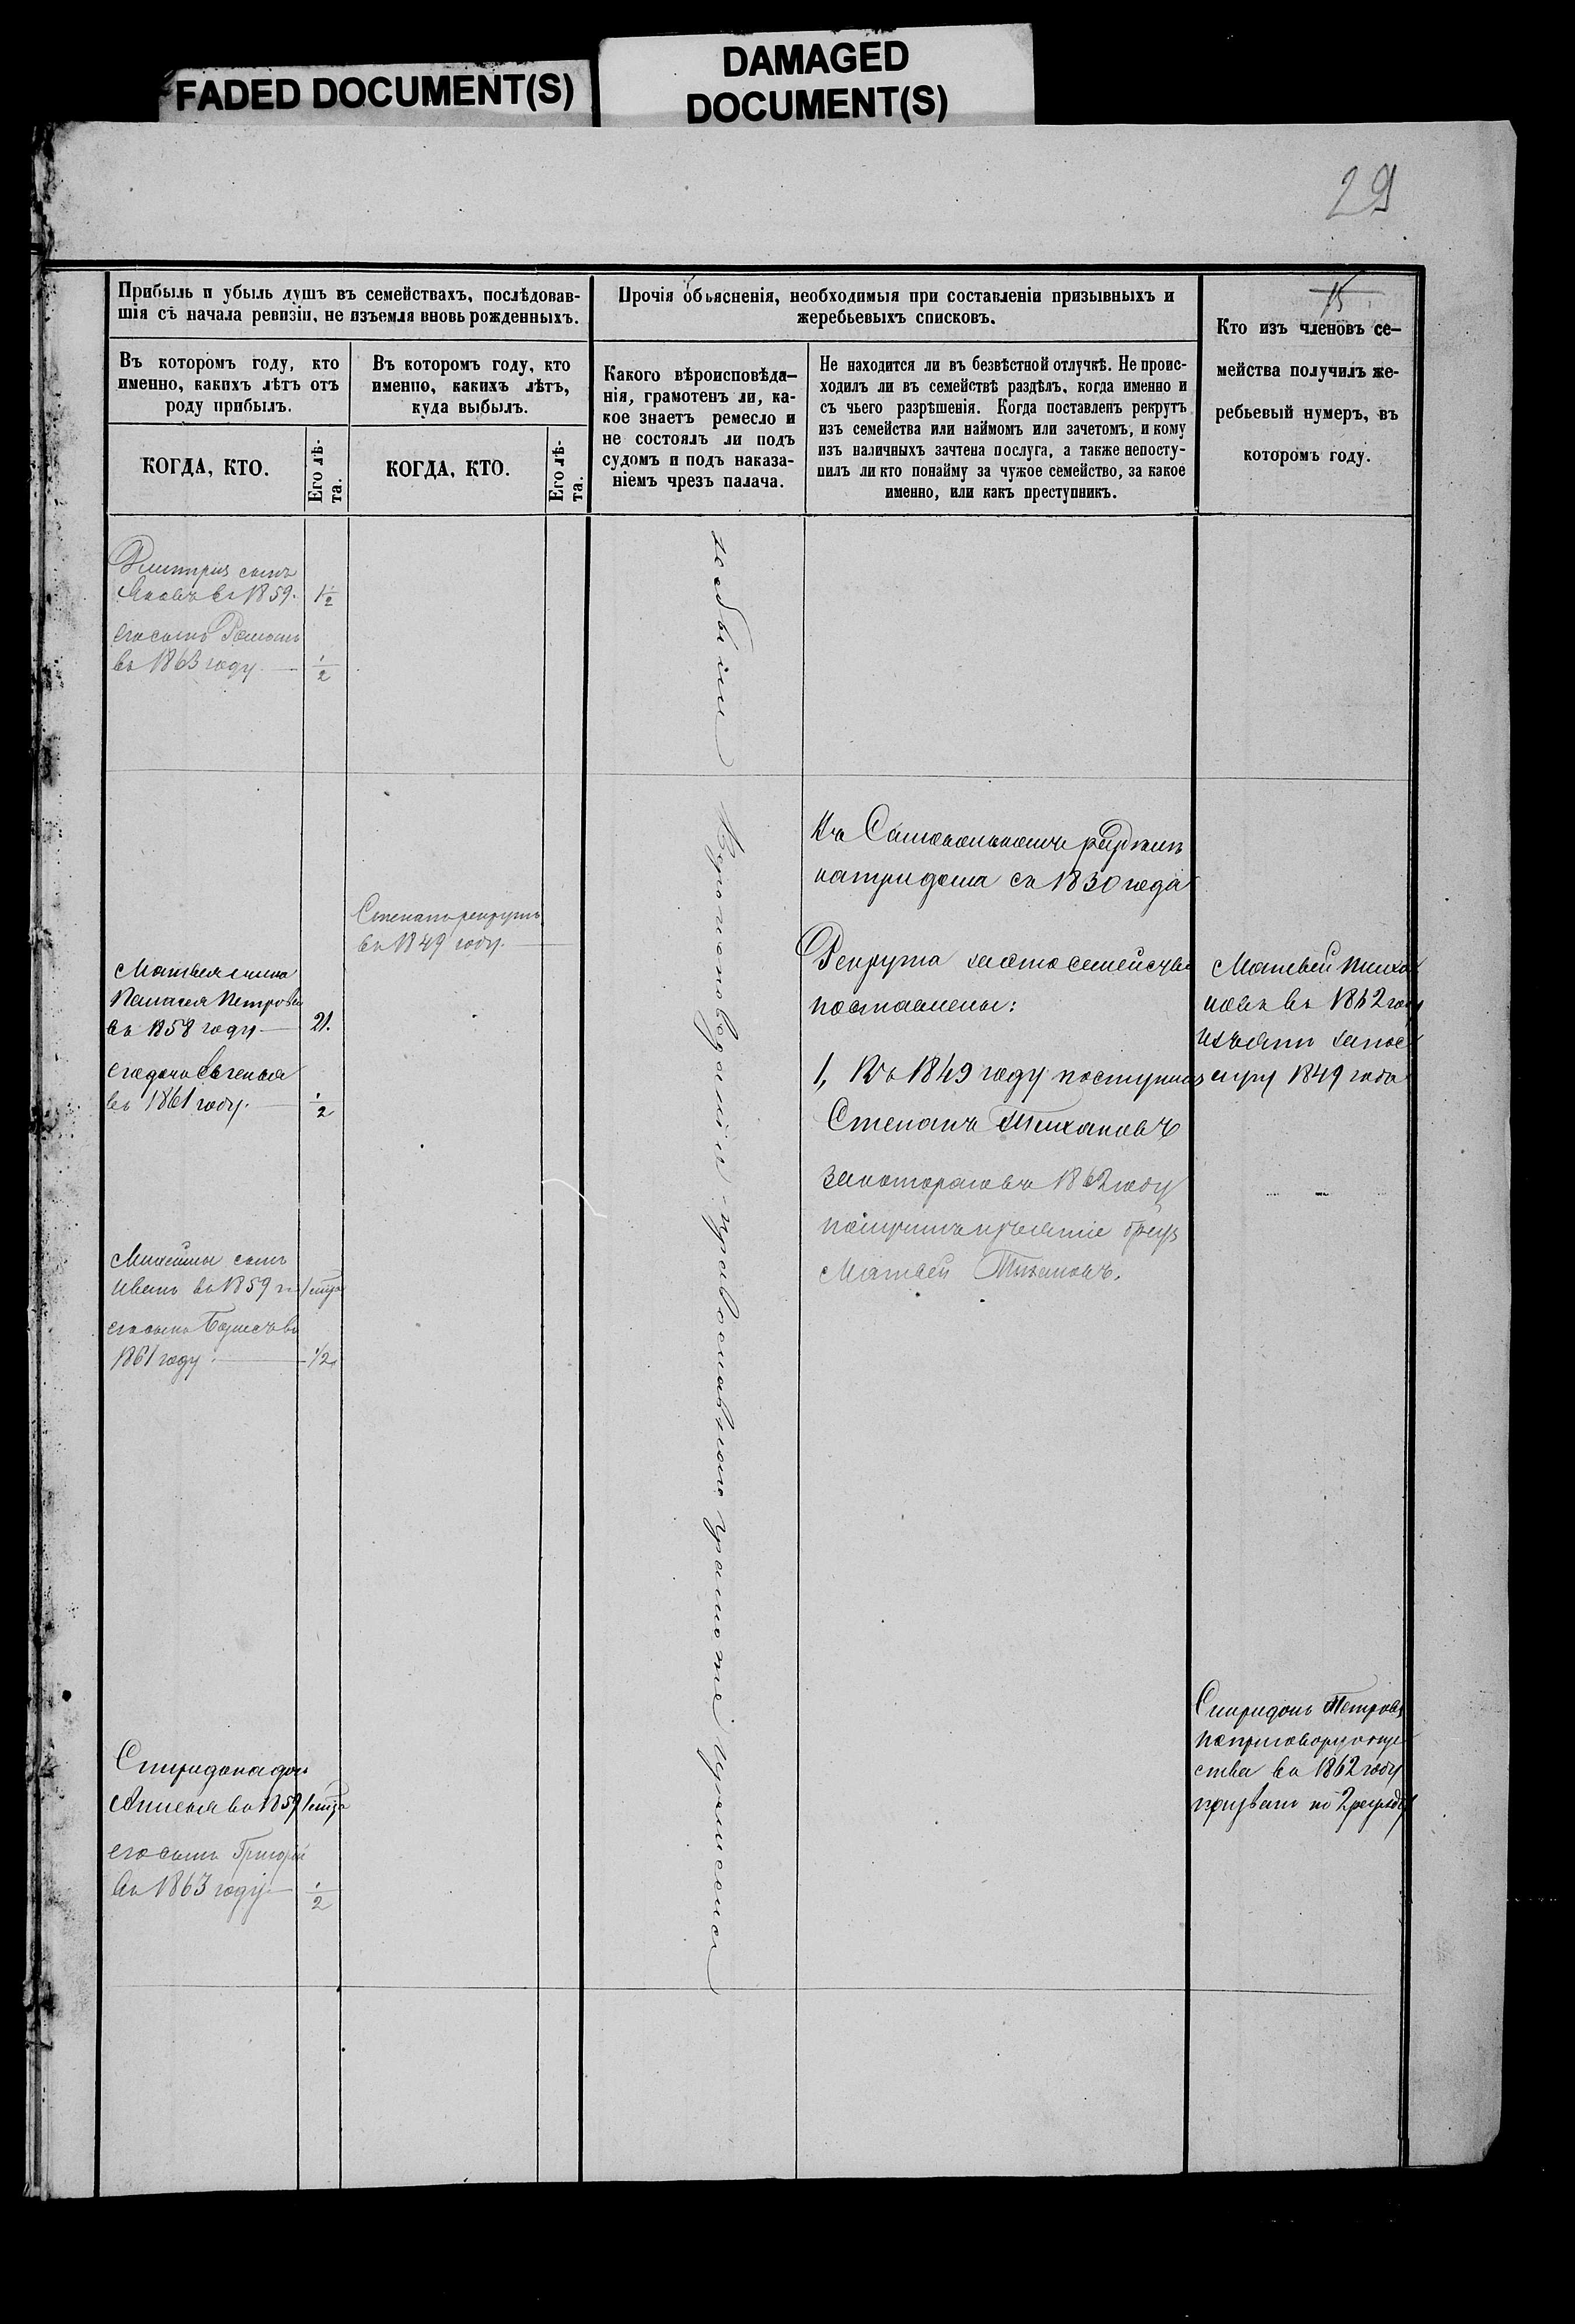 FADED DOCUMENT(S)
DAMAGED
DOCUMENT(S)
29
15
Прибыль и убыль душъ въ семействахъ, послѣдовав-
шія съ начала ревизіи, не изъемля вновь рожденныхъ.
Въ которомъ году, кто
именно, какихъ лѣтъ отъ
роду прибылъ.
КОГДА, КТО.
Его лѣ-
та.
Въ которомъ году, кто
именно, какихъ лѣтъ,
куда выбылъ.
КОГДА, КТО.
Его лѣ-
та.
Прочія обьясненія, необходимыя при составленіи призывныхъ и
жеребьевыхъ списковъ.
Какого вѣроисповѣда-
нія, грамотенъ ли, ка-
кое знаетъ ремесло и
не состоялъ ли подъ
судомъ и подъ наказа-
ніемъ чрезъ палача.
Не находится ли въ безвѣстной отлучкѣ. Не проис-
ходилъ ли въ семействѣ раздѣлъ, когда именно и
съ чьего разрѣшенія. Когда поставленъ рекрутъ
изъ семейства или наймомъ или зачетомъ, и кому
изъ наличныхъ зачтена послуга, а также непосту-
пилъ ли кто понайму за чужое семейство, за какое
именно, или какъ преступникъ.
Кто изъ членовъ се-
мейства получилъ же-
ребьевый нумеръ, въ
которомъ году.
Дмитрия сынъ
Яковъ въ 1859. 1½
его сынъ Романъ
въ 1863 году ½
Степанъ рекрутъ
въ 1849 году.
Матвея жена
Пелагея Петрова
въ 1858 году 21.
его дочь Евгенья
въ 1861 году. ½
сынъ
Иванъ въ 1859
его сынъ Борисъ въ
1861 году ½
Спиридона дочь
въ 1859
его сынъ Григорій
въ 1863 году ½
Вероисповеданія православнаго грамоте
на три дома съ 1830 года
Рекрута семейства
поставлены:
1, Въ 1849 году поступилъ
Степанъ Тихановъ
за котораго въ 1862 году
изъятіе братъ
Матвей Тихановъ.
Матвей Тиха
новъ въ 1862 году
изъятъ за пос
лугу 1849 года
Спиридонъ Петровъ
по приговору обще
ства въ 1862 году
призванъ по 2 разряду